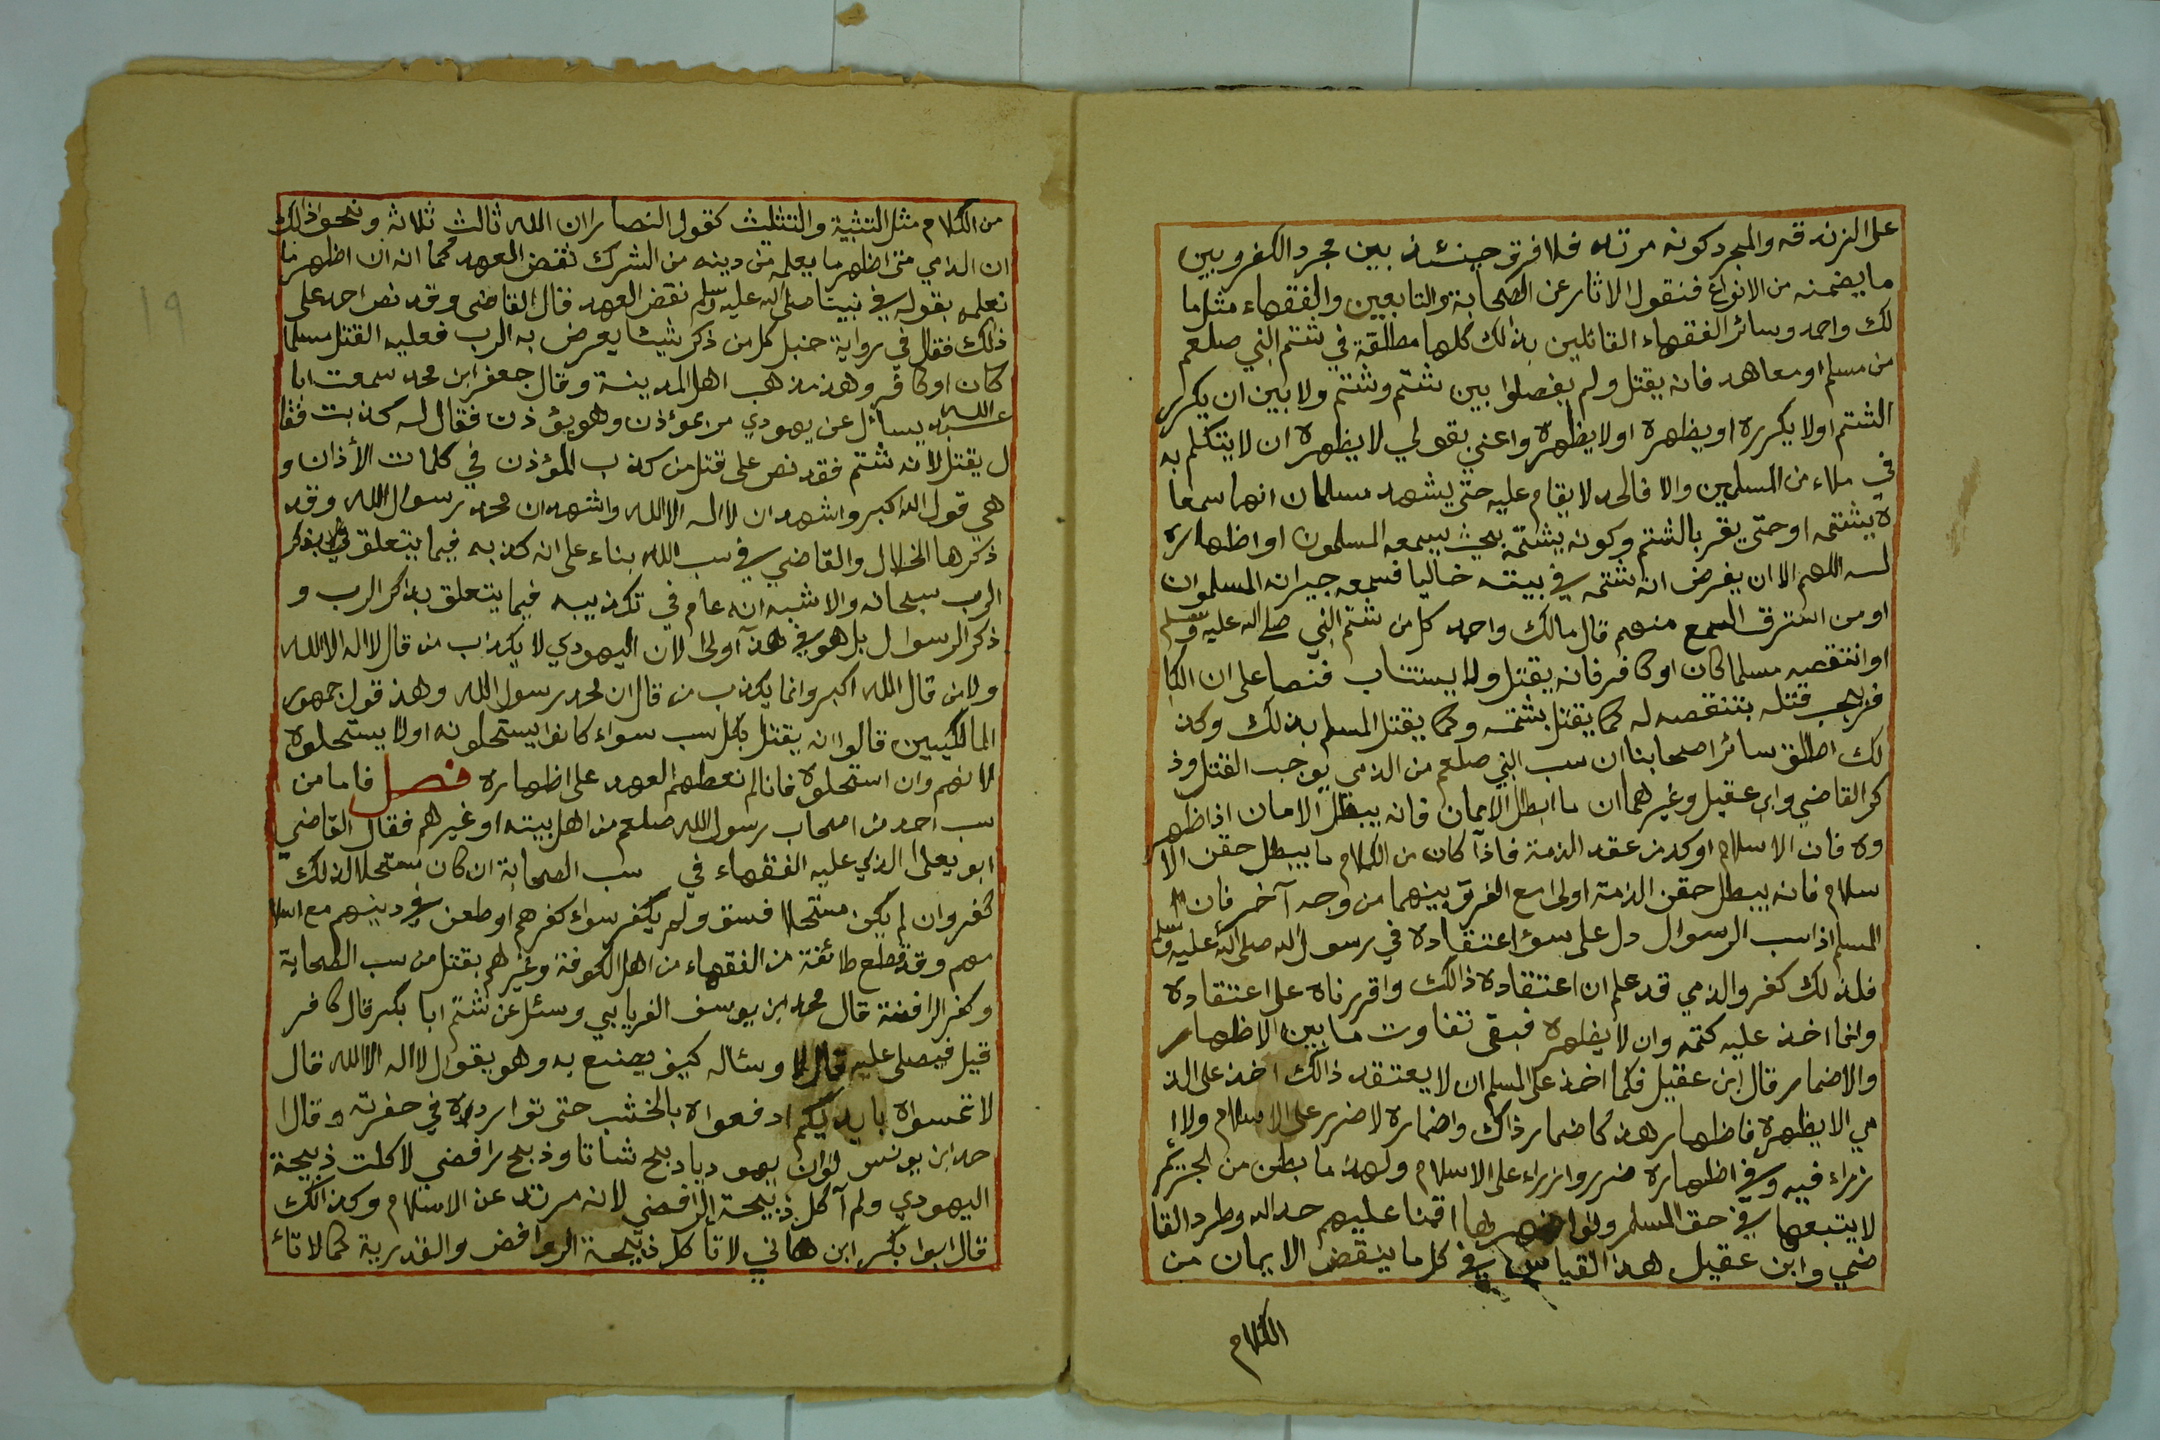 على الزندقه والمجرد كونه مرتد فلا فرق حينئذ بين مجرد الكفر وبين
ما يضمنه من الانواع فنقول الاثار عن الصحابة والتابعين والفقهاء مثل ما
لك واحمد وسائر الفقهاء القائلين بذالك كلها مطلقة في شتم النبي صلعم
من مسلم او معاهد فانه يقتل ولم يفصلوا بين شتم وشتم ولا بين ان يكرر
الشتم اولا يكرره او يظهره اولا يظهره واعني بقولي لا يظهره ان لا يتكلم به
في ملاء من المسلمين والا فالحد لا يقام عليه حتى يشهد مسلمان انهما سمعا
ه يشتمه او حتى يقر بالشتم وكونه يشتمه بحيث يسمعه المسلمون او اظهاره
له اللهم الا ان يفرض انه شتمه في بيته خاليا فسمعه جيرانه المسلمون
او من استرق السمع منهم قال مالك واحمد كل من شتم النبي صلى الله عليه وسلم
او انتقصه مسلما كان او كافر فانه يقتل ولا يستتاب فنصا على ان الكا
فر يجب قتله بتنقصه له كما يقتل بشتمه وكما يقتل المسلم بذلك وكذ
لك اطلق سائر اصحابنا ان سب النبي صلعم من الذمي يوجب القتل وذ
كر القاضي وابن عقيل وغيرهما ان ما ابطل الايمان فانه يبطل الامان اذا ظهر
وه فان الاسلام اوكد من عقد الذمة فاذا كان من الكلام ما يبطل حقن الا
سلام فانه يبطل حقن الذمة اولى مع الفرق بينهما من وجه آخر فان
المسلم اذا سب الرسوال دل على سوء اعتقاده في رسول الله صلى الله عليه وسلم
فلذلك كفر والذمي قد علم ان اعتقاده ذالك واقررناه على اعتقاده
وانما اخذ عليه كتمه وان لا يظهره فبقى تفاوت ما بين الاظهار
والاضمار قال ابن عقيل فكما اخذ على المسلم ان لا يعتقد ذالك اخذ على الذ
مي الا يظهره فاظهار هذ كاضمار ذاك واضماره لا ضرر على الاسلام ولا ا
زراء فيه وفي اظهاره ضرر وازراء على الاسلام ولهذ ما بطن من الجرايم
لا يتبعها في حق المسلم ولو اظهروها اقمنا عليهم حد الله وطرد القا
ضي وابن عقيل هذ القياس في كل ما ينقض الايمان من
الكلام
من الكلام مثل التثنية والتثليث كقول النصار ان الله ثالث ثلاثه ونحو ذلك
ان الذمي متى اظهر ما يعلمه من دينه من الشرك نقض العهد كما انه ان اظهر ما
نعلمه بقوله في نبينا صلى الله عليه وسلم نقض العهد قال القاضي وقد نص احمد على
ذلك فقال في رواية حنبل كل من ذكر شيئا يعرض به الرب فعليه القتل مسلما
كان او كافر وهذ مذهب اهل المدينة وقال جعفر ابن محمد سمعت ابا
عبد الله يسائل عن يهودي مر بمؤذن وهو يؤذن فقال له كذبت فقا
ل يقتل لانه شتم فقد نص على قتل من كذب المؤذن في كلمات الأذان و
هي قول الله اكبر واشهد ان لا اله الا الله واشهد ان محمد رسول الله وقد
ذكرها الخلال والقاضي في سب الله بناء على انه كذبه فيما يتعلق بذكر
الرب سبحانه والاشبه انه عام في تكذيبه فيما يتعلق بذاكر الرب و
ذكر الرسوال بل هو في هذ آ اولى لان اليهودي لا يكذب من قال لا اله الا الله
ولا من قال الله اكبر وانما يكذب من قال ان محمد رسول الله وهذ قول جمهور
المالكيين قالوا انه يقتل بكل سب سواء كانوا يستحلونه اولا يستحلوه
لانهم وان استحلوه فانا لم نعطهم العهد على اظهاره فصل فاما من
سب احمد من اصحاب رسول الله صلعم من اهل بيته او غيرهم فقال القاضي
ابو يعلى الذي عليه الفقهاء في سب الصحابة ان كان مستحلا لذلك
كفر وان لم يكن مستحلا فسق ولم يكفر سواء كفرهم او طعن في دينهم مع اسلا
مهم وقد قطع طائفة من الفقهاء من اهل الكوفة وغيرهم بقتل من سب الصحابة
وكفر الرافضة قال محمد بن يوسف الفريابي وسئل عن شتم ابا بكر قال كافر
قيل فيصلى عليه قال لا وسئاله كيف يصنع به وهو يقوال لا اله الا الله قال
لا تمسواه بايديكم ادفعواه بالخشب حتى تواردوه في حفرته وقال ا
حمد ابن يونس لوان يهوديا ذبح شاتا وذبح رافضي لاكلت ذبيحة
اليهودي ولم آكل ذبيحة الرافضي لانه مرتد عن الاسلام وكذالك
قال ابوا بكر ابن هاني لا تاكل ذبيحة الروافض والقدرية كما لا تاء